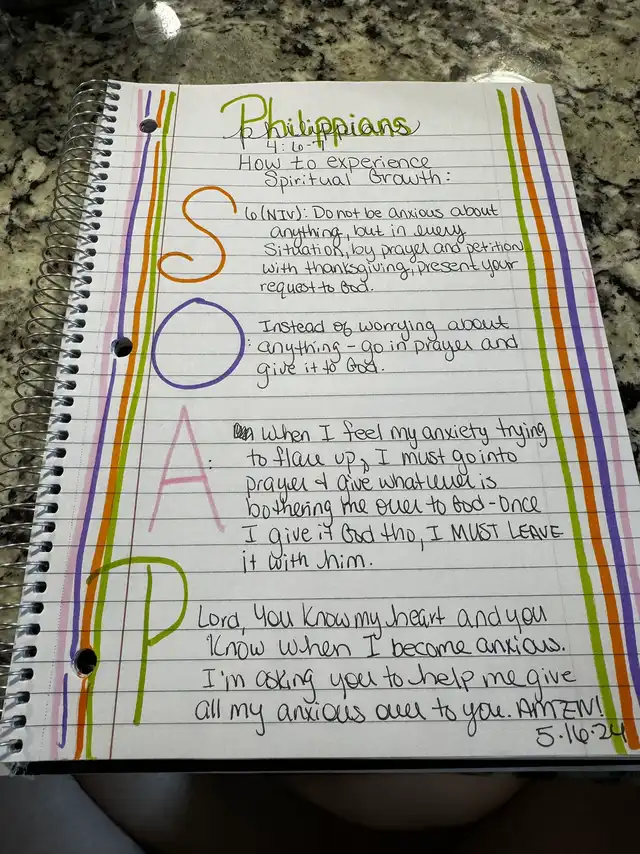 Philippians
4:6-7
How to experience
Spiritual Growth:
S
6 (NIV): Do not be anxious about
anything, but in every
situation, by prayer and petition
with thanksgiving, present your
request to God.
O:
Instead of worrying about
anything - go in prayer and
give it to God.
A:
When I feel my anxiety trying
to flare up, I must go into
prayer & give whatever is
bothering me over to God - once
I give it God tho, I MUST LEAVE
it with him.
P
Lord, you know my heart and you
know when I become anxious.
I'm asking you to help me give
all my anxious over to you. AMEN!
5.16.24